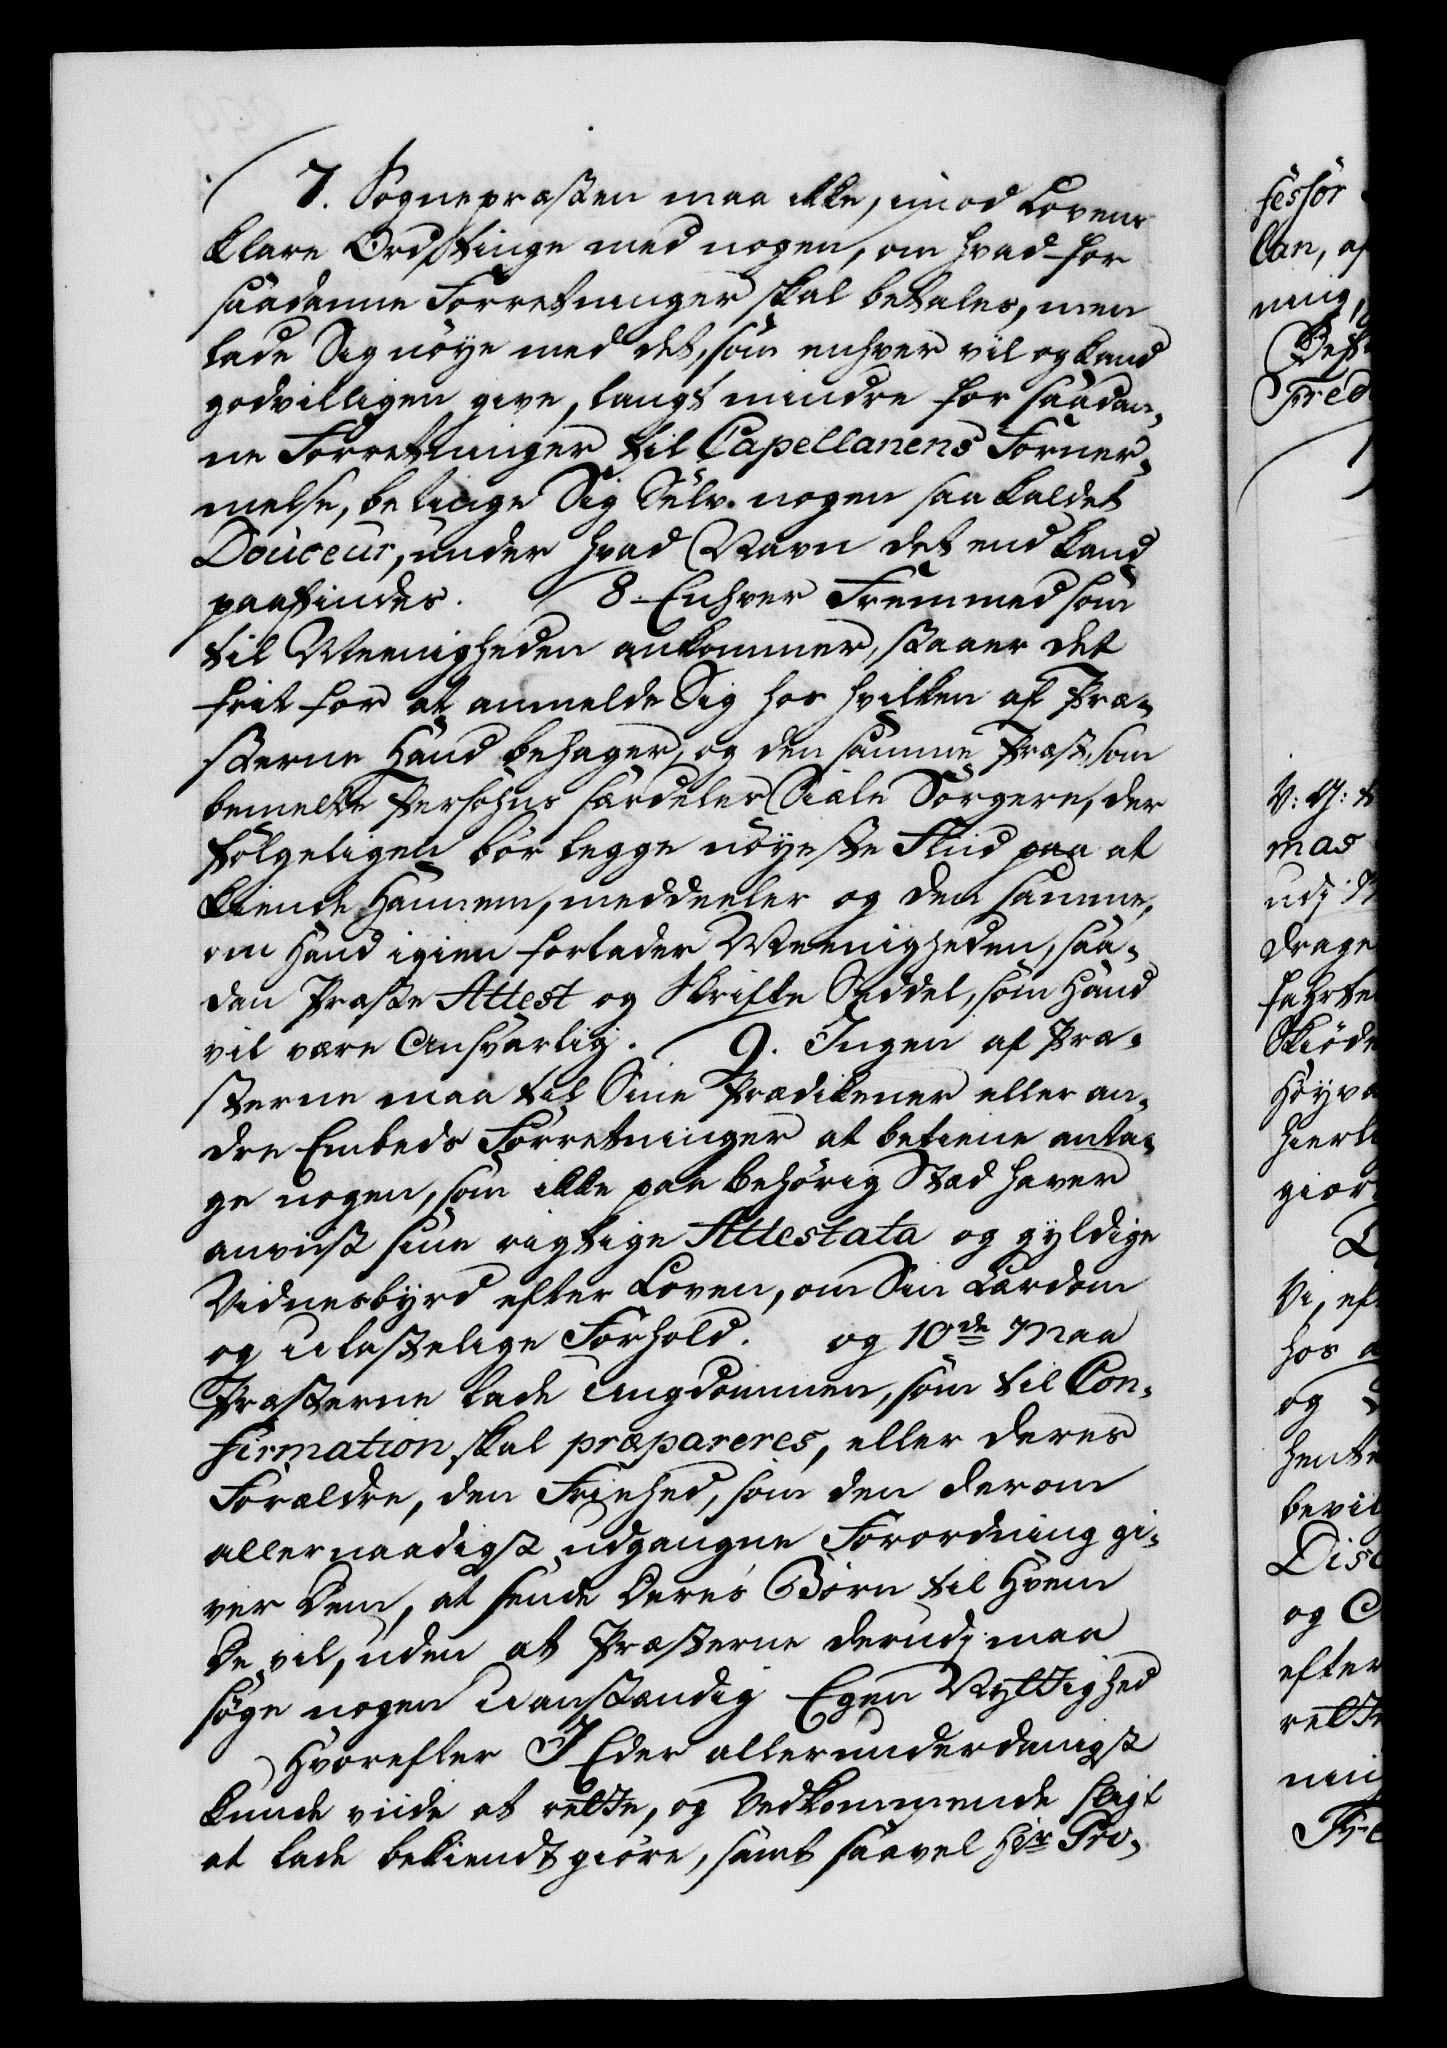 7. Sognepræsten maa ikke, imod Lovens
klare Ord, tinge med nogen, om hvad for
saadanne Forretninger skal betales, men
lade Sig nöye med det, som enhver vil og kand
godvilligen give, langt mindre for saadan-
ne Forretninger til Capellanens Forner-
melse, betinge Sig Selv nogen saa kaldet
Douceur, under hvad Navn det end kand
paafindes. 8 Enhver Fremmed som
til Meenigheden ankommer, staaer det
frit for at anmelde Sig hos hvilken af Præ-
sterne Hand behager, og den samme Præst, som
bemelte Persohns særdeles Siæle Sörgere, der
fölgeligen bör legge nöyeste Flid paa at
kiende Hannem, meddeeler og den samme,
om Hand igien forlader Meenigheden, saa-
dan Præste Attest og Skrifte Seddel, som Hand
vil være Ansvarlig. 9. Ingen af Præ-
sterne maa til Sine Prædikener eller an-
dre Embeds Forretninger at betiene anta-
ge nogen, som ikke paa behörig Stæd haver
anviist sine rigtige Attestata og gyldige
Vidnesbyrd efter Loven, om Sin Lærdom
og ulastelige Forhold. og 10de Maa
Præsterne lade Ungdommen, som til Con-
firmation skal præpareres, eller deres
Forældre, den Friehed, som den derom
allernaadigst udgangne Forordning gi-
ver Dem, at sende Deres Börn til Hvem
De vil, uden at Præsterne derudj maa
söge nogen uanstændig Egen Nyttighed
Hvorefter I Eder allerunderdanigst
kunde viide at rette, og Vedkommende sligt
at lade bekiendtgiöre, samt saavel Hr Pro-
fessor
lan, af
ning,
Fred
V: G:
mas
udj
drage
Höyv
giör
Vi, eft
hos
og
hente
bevil
Disc
og
efter
rette
ning